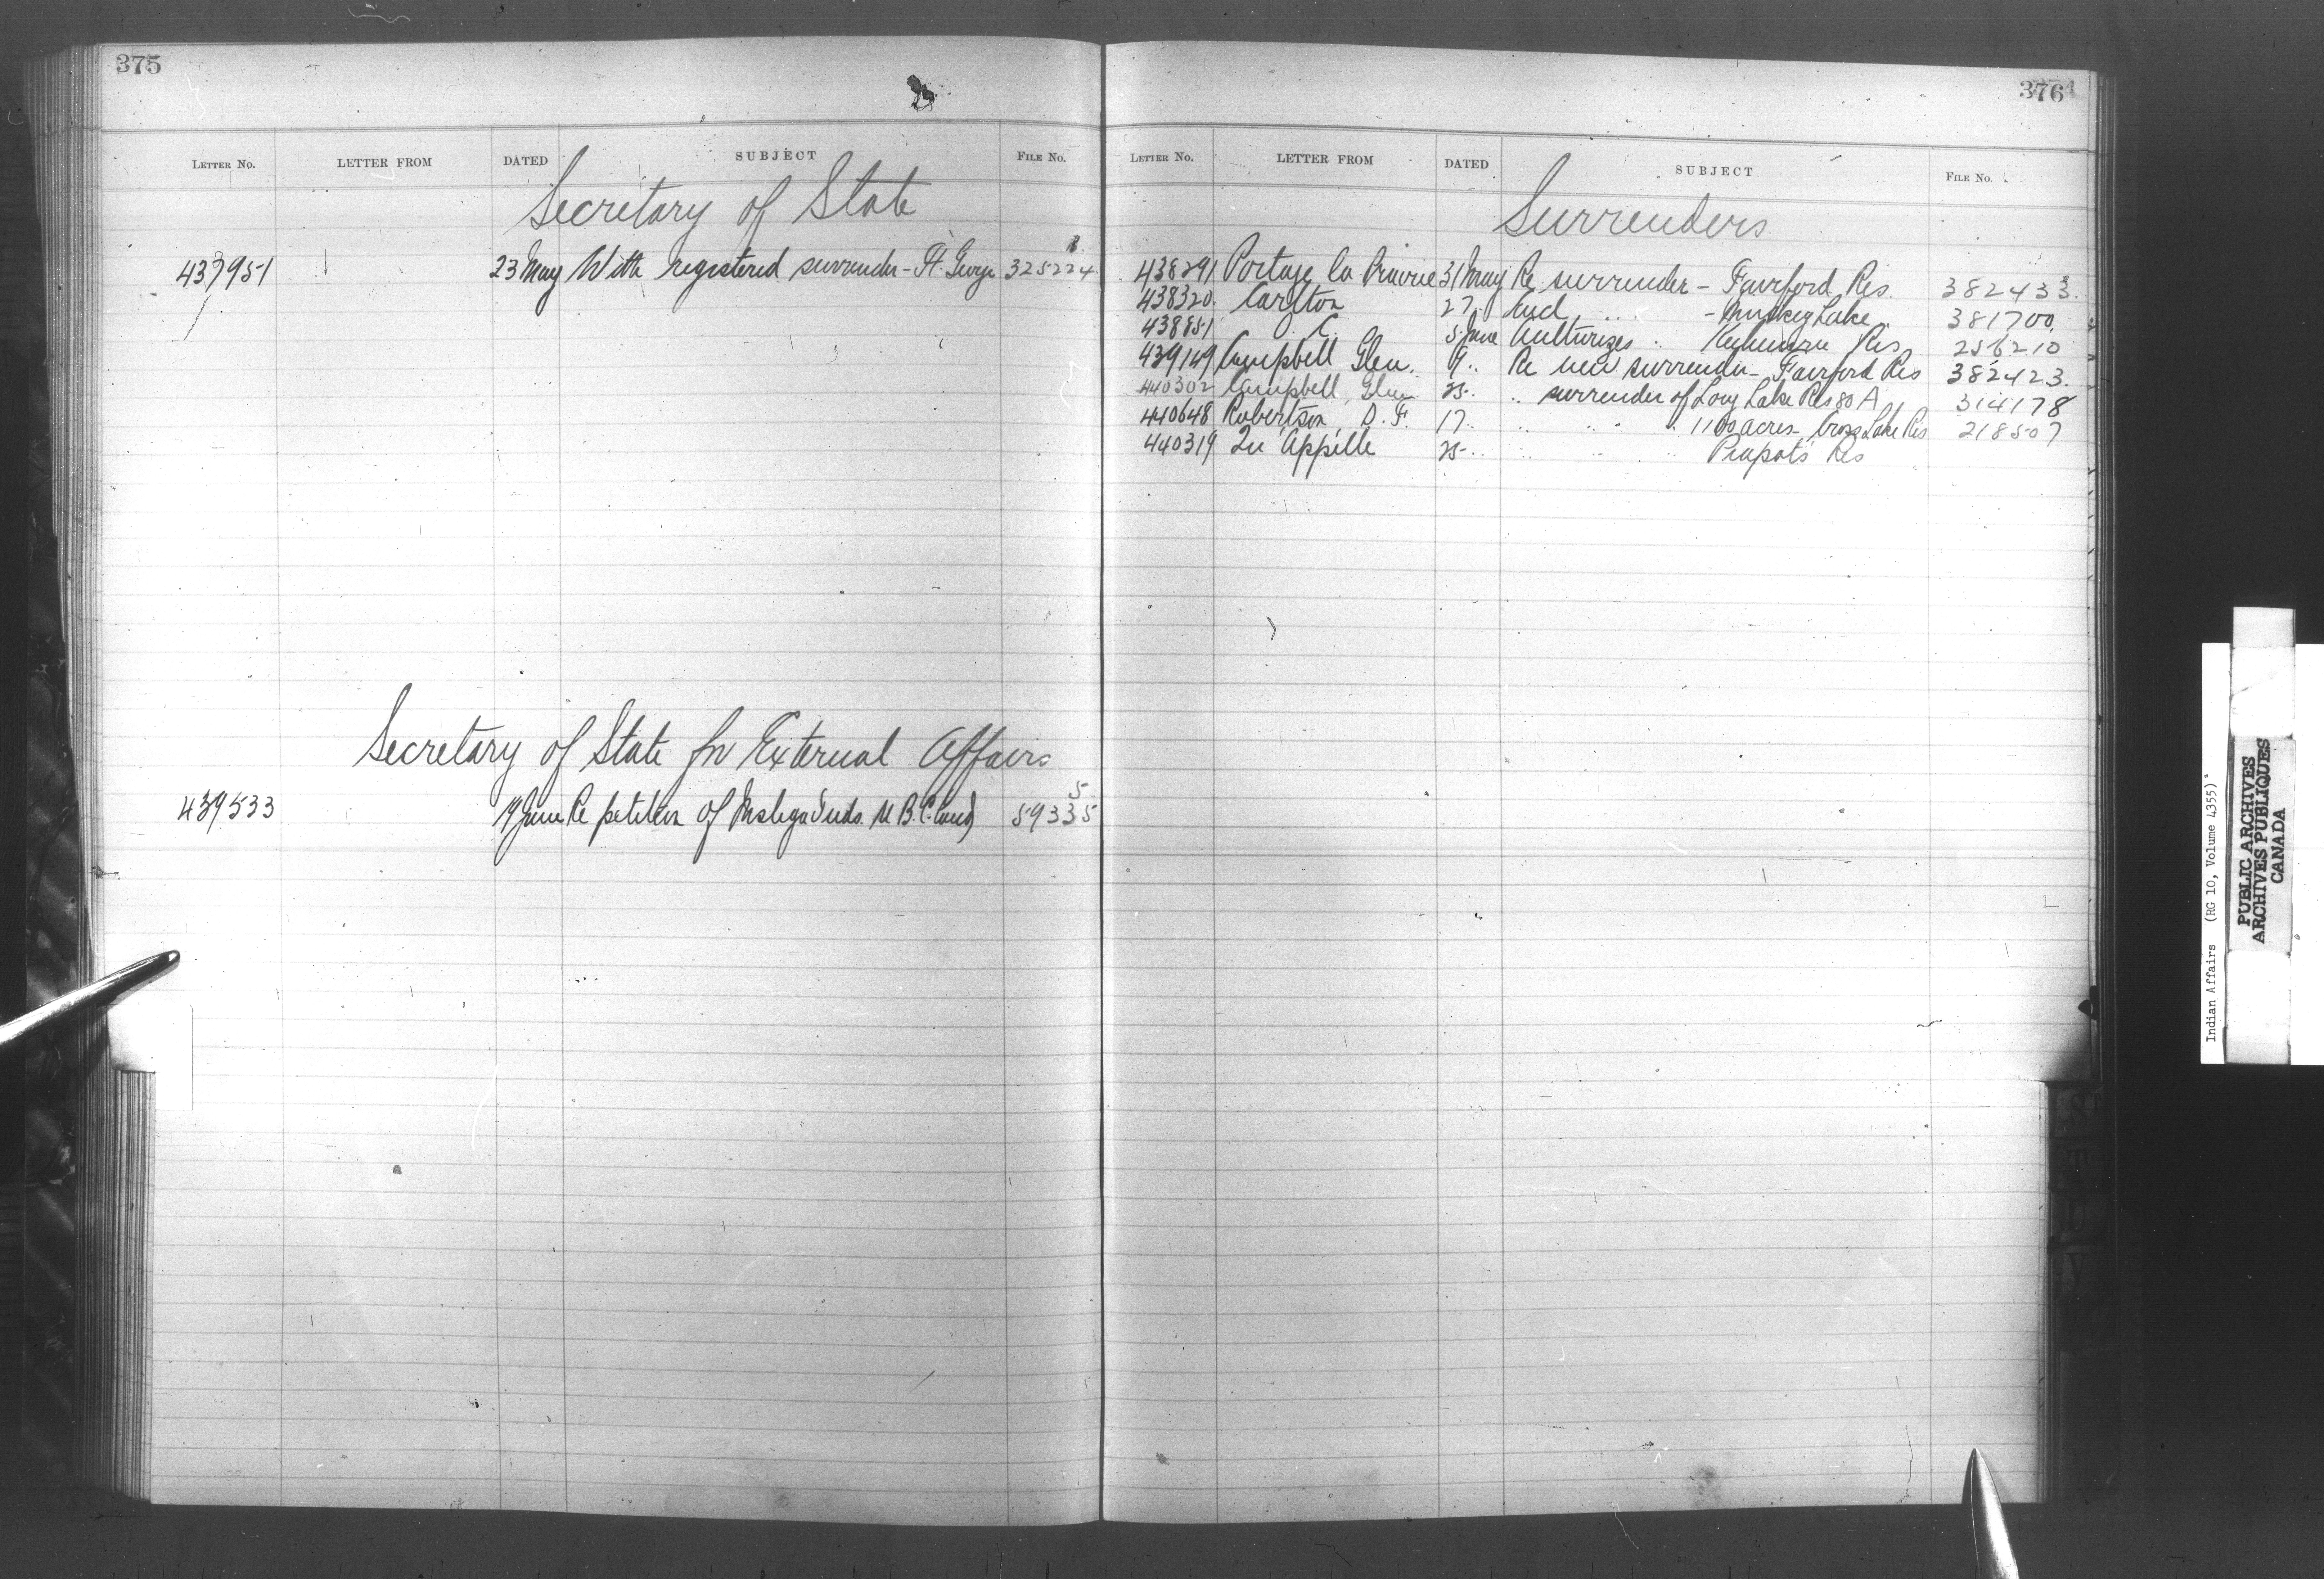 375
LETTER NO. LETTER FROM DATED SUBJECT FILE NO.
Secretary of State
437951 23 May With registered surrender - Ft. George 325224
Secretary of State for External Affairs
439533 19 June Re petition of Inds. B.C. land 59335
376
LETTER NO. LETTER FROM DATED SUBJECT FILE NO.
Surrenders
438291 Portage la Prairie 31 May Re surrender - Fairford Res. 382433
438320 Carlton 27 " " - Muskeg Lake 381700
438851 O. C. 5 June Authorizes " Res 256210
439149 Campbell Glen. 9 " Re new surrender - Fairford Res 382423
440302 Campbell, Glen 25 " " surrender of Long Lake Res 80 A 314178
440648 Robertson, D. F. 17 " " " " 1100 acres - Cross Lake Res 218507
440319 Qu'Appelle 25 " " " " Piapot's Res
Indian Affairs (RG 10, Volume 4355)
PUBLIC ARCHIVES
ARCHIVES PUBLIQUES
CANADA